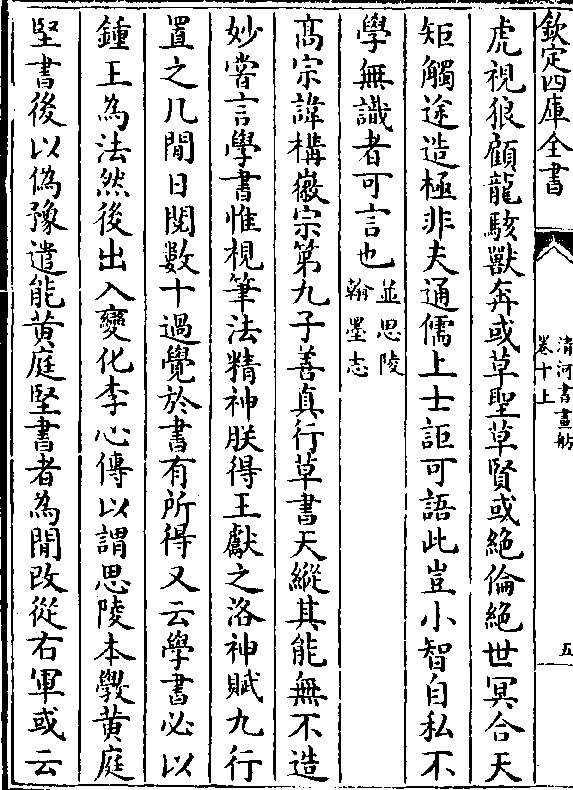 欽定四庫全書
清河書畫舫
卷十上
五
虎視狼顧龍駭獸奔或草聖草賢或絶倫絶世冥合天
矩觸途造極非夫通儒上士詎可語此豈小智自私不
學無識者可言也並思陵
翰墨志
髙宗諱構徽宗第九子善真行草書天縱其能無不造
妙嘗言學書惟視筆法精神朕得王獻之洛神賦九行
置之几閒日閱數十過覺於書有所得又云學書必以
鍾王為法然後出入變化李心傳以謂思陵本學黄庭
堅書後以偽豫遣能黄庭堅書者為閒改從右軍或云